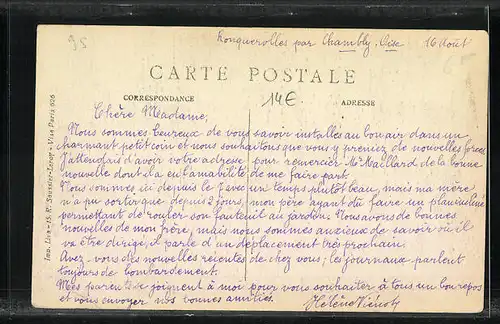 95
Ronquerolles par Chambly. Oise 16 Aout
CARTE POSTALE
CORRESPONDANCE
14€
ADRESSE
Chère Madame,
Nous sommes heureux de vous savoir installés au bon air dans un
charmant petit coin et nous souhaitons que vous y preniez de nouvelles forces
J'attendais d'avoir votre adresse pour remercier Mr Maillard de la bonne
nouvelle dont il a eu l'amabilité de me faire part.
Nous sommes ici depuis le 7 avec un temps plutôt beau, mais ma mère
n'a pu sortir que depuis 2 jours, mon père ayant dû faire un plan incliné
permettant de rouler son fauteuil au jardin. Nous avons de bonnes
nouvelles de mon frère, mais nous sommes anxieuse de savoir où il
va être dirigé, il parle d'un déplacement très prochain.
Avez-vous des nouvelles récentes de chez vous; les journaux parlent
toujours de bombardement.
Mes parents se joignent à moi pour vous souhaiter à tous un bon repos
et vous envoyer nos bonnes amitiés.
Hélène
Visa Paris 626